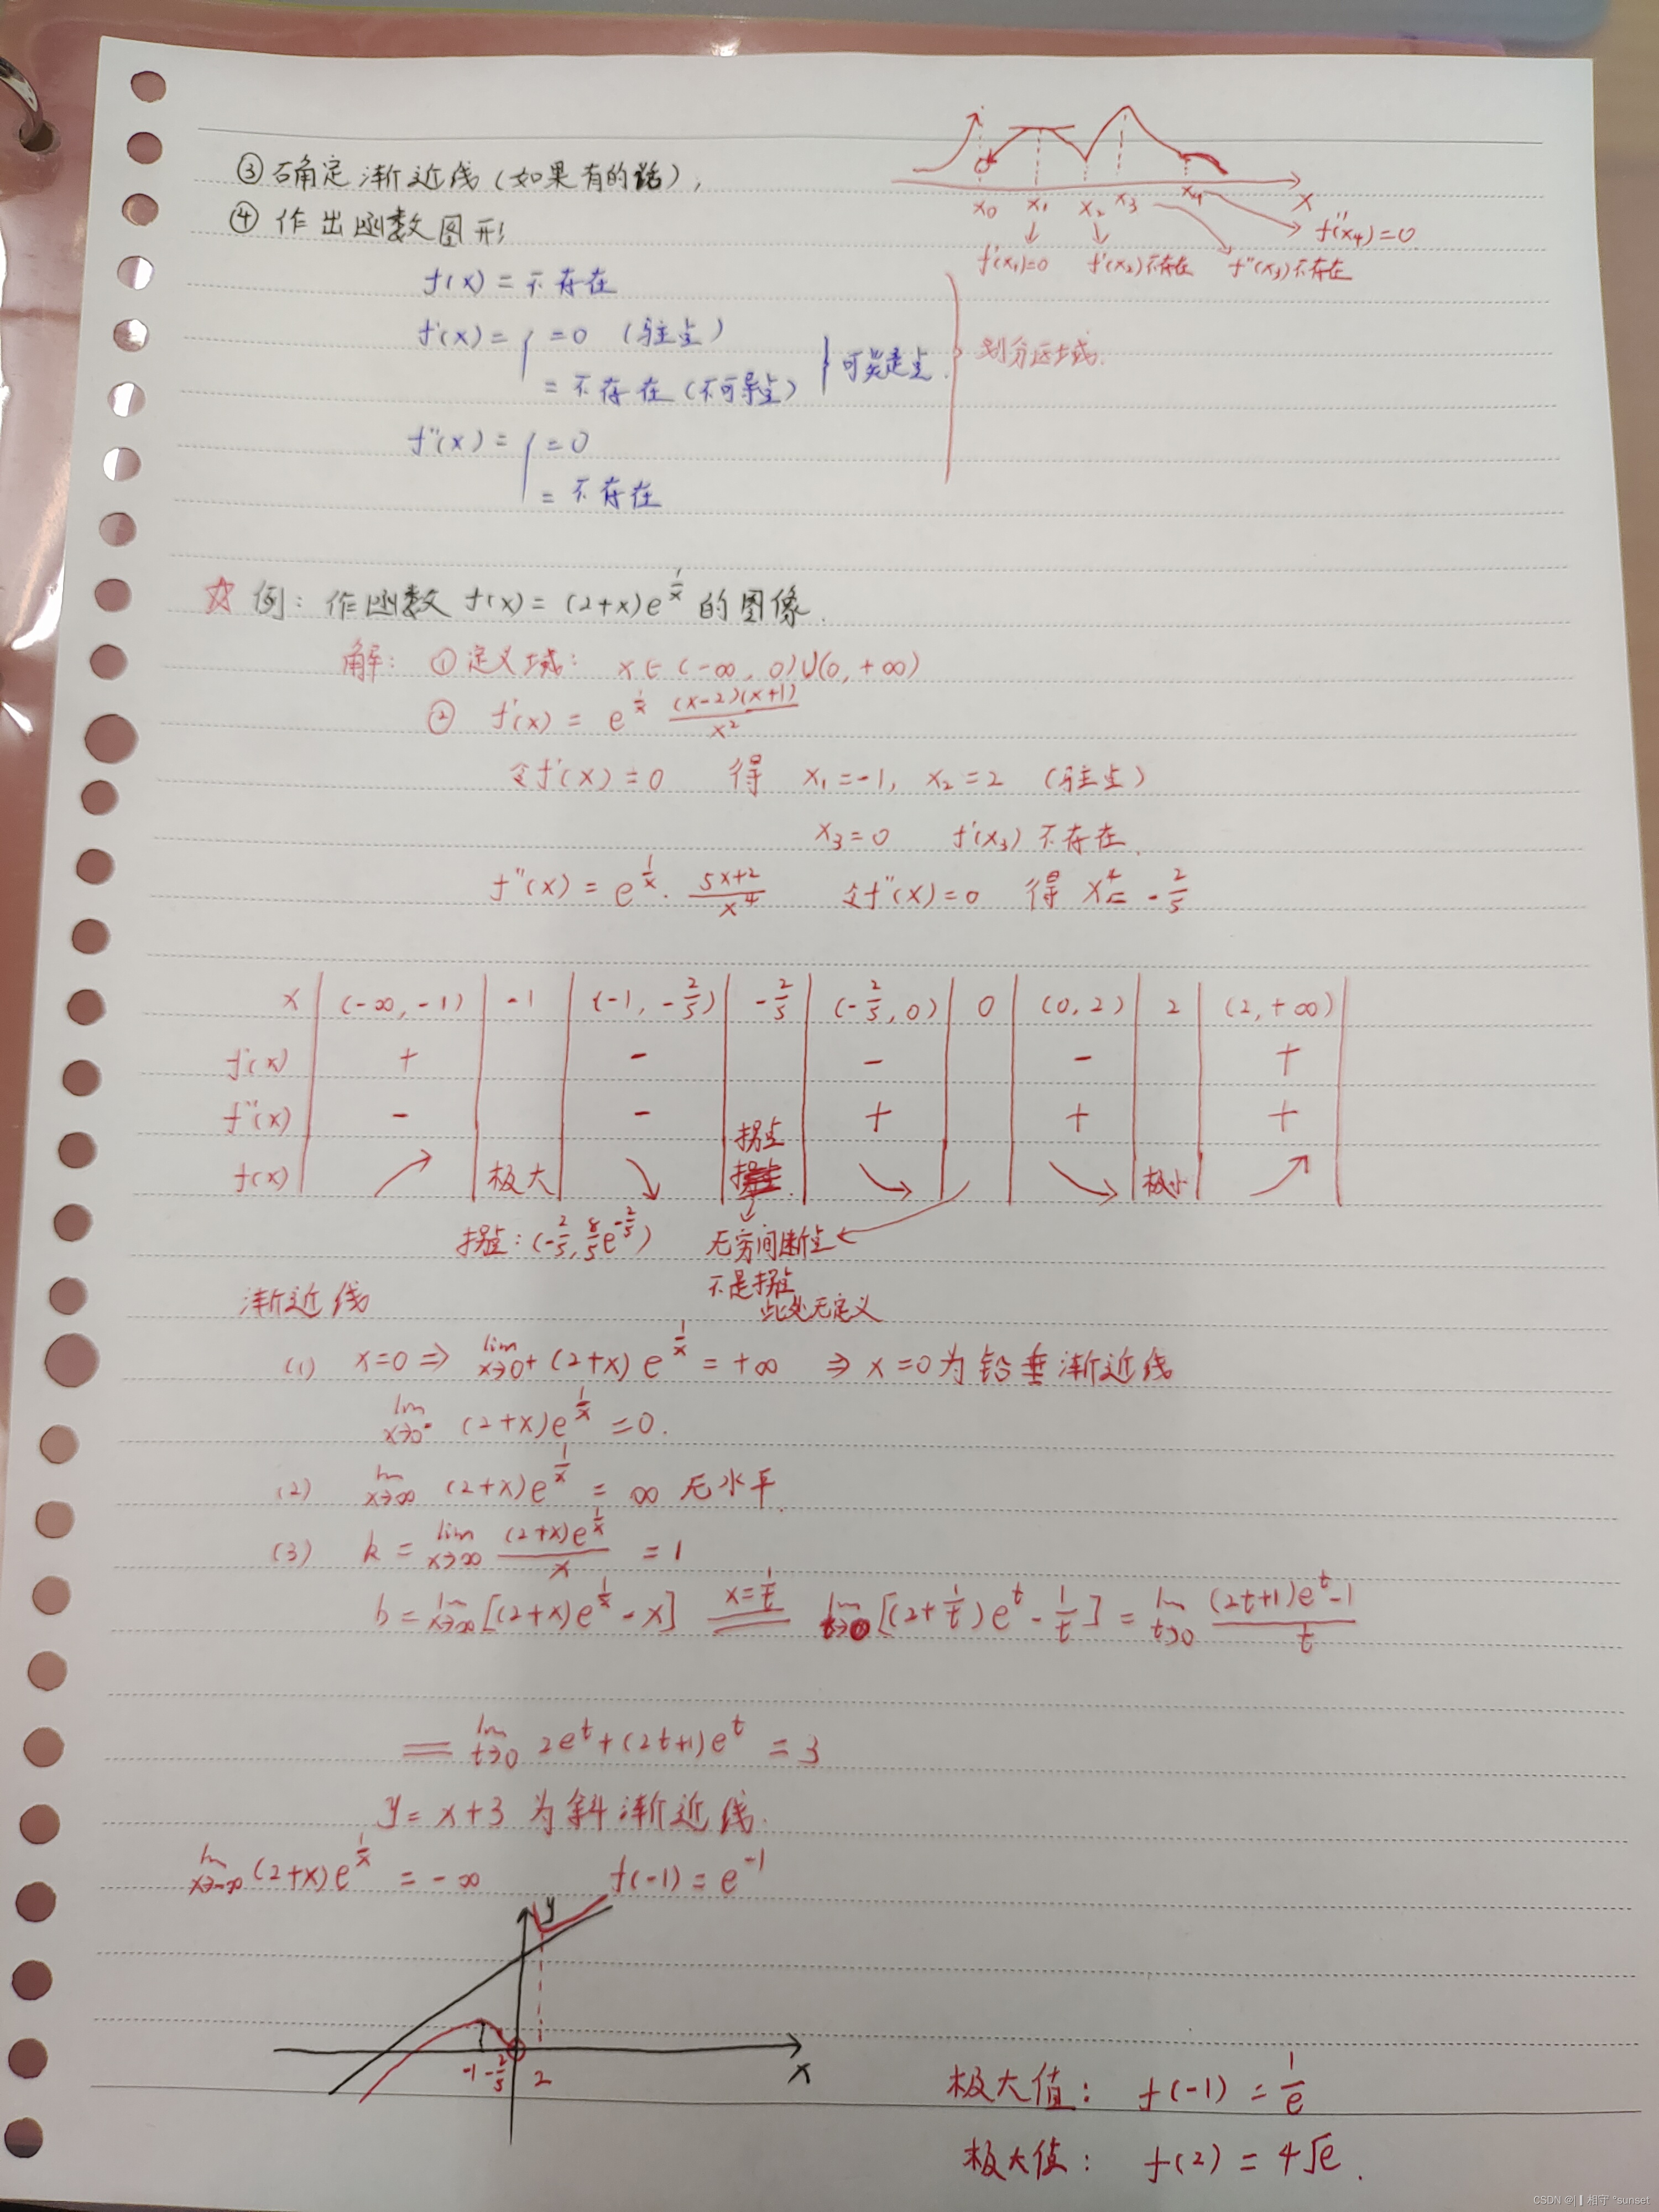 ③确定渐近线(如果有的话),
④ 作出函数图形
x₀ x₁ x₂ x₃ x₄ x
f'(x₁)=0 f'(x₂)不存在 f''(x₃)不存在 f''(x₄)=0
f(x) = 不存在
f'(x) = { =0 (驻点)
= 不存在 (不可导点) } 可能是点.
划分区域.
f''(x) = { =0
= 不存在
☆ 例: 作函数 f(x) = (2+x)e^{1/x} 的图像.
解: ① 定义域: x∈(-∞, 0)∪(0, +∞)
② f'(x) = e^{1/x} (x-2)(x+1)/x²
令f'(x)=0 得 x₁=-1, x₂=2 (驻点)
x₃=0 f'(x₃) 不存在.
f''(x) = e^{1/x} · (5x+2)/x⁴ 令f''(x)=0 得 x₄= -2/5
x | (-∞, -1) | -1 | (-1, -2/5) | -2/5 | (-2/5, 0) | 0 | (0, 2) | 2 | (2, +∞) |
f'(x) | + | | - | | - | | - | | + |
f''(x) | - | | - | 拐点 | + | | + | | + |
f(x) | ↗ | 极大 | ↘ | | ↘ | | ↘ | 极小 | ↗ |
拐点: (-2/5, 8/5 e^{-2/5}) 无穷间断点
不是拐点
此处无定义
渐近线
(1) x=0 ⇒ lim x→0⁺ (2+x) e^{1/x} = +∞ ⇒ x=0为铅垂渐近线
lim x→0⁻ (2+x)e^{1/x} = 0.
(2) lim x→∞ (2+x)e^{1/x} = ∞ 无水平.
(3) k = lim x→∞ (2+x)e^{1/x}/x = 1
b = lim x→∞ [(2+x)e^{1/x} - x] x=1/t lim t→0 [(2+1/t)e^t - 1/t] = lim t→0 ((2t+1)e^t-1)/t
= lim t→0 2e^t+(2t+1)e^t = 3
y = x+3 为斜渐近线.
lim x→-∞ (2+x)e^{1/x} = -∞ f(-1) = e^{-1}
y
-1 -2/5 2 x
极大值: f(-1) = 1/e
极大值: f(2) = 4√e.
CSDN @| ‖ 相守 °sunset